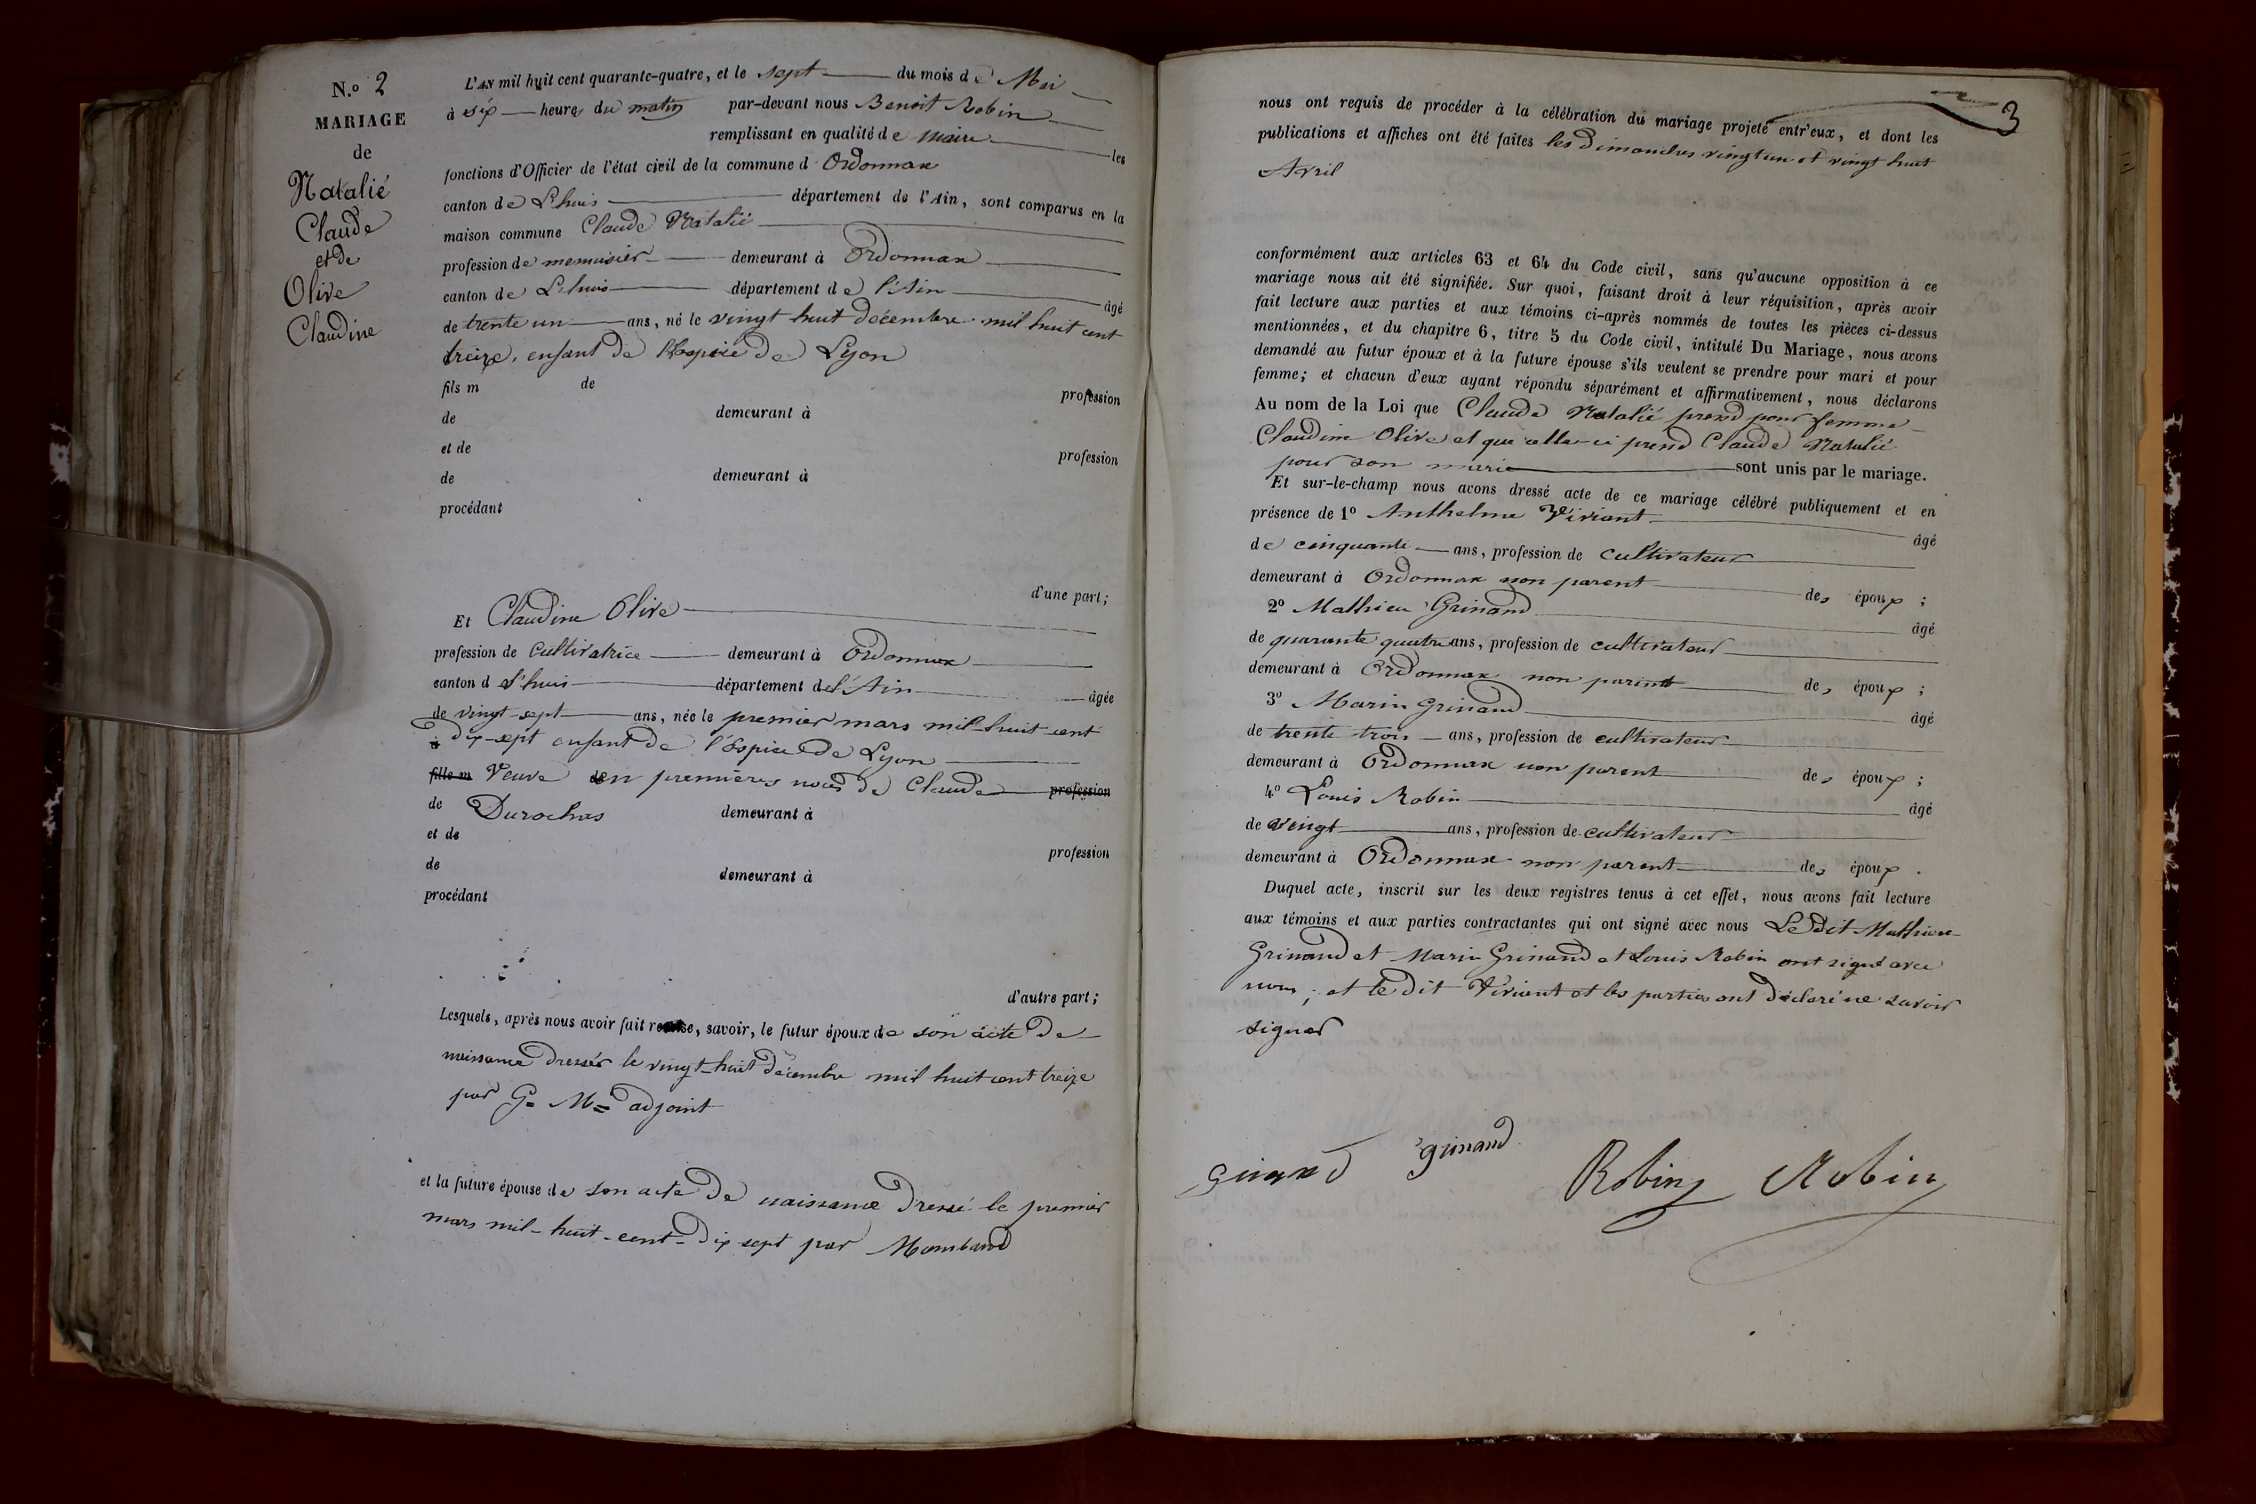 N.o 2
MARIAGE
de
Natalié
Claude
et de
Olive
Claudine
L'AN mil huit cent quarante-quatre, et le sept du mois de Mai
à six heures du matin par-devant nous Benoit Robin
remplissant en qualité de maire les
fonctions d'Officier de l'état civil de la commune d Ordonnax
canton de Lhuis département de l'Ain, sont comparus en la
maison commune Claude Natalié
profession de menuisier demeurant à Ordonnax
canton de Lhuis département de l'Ain âgé
de trente un ans, né le vingt huit décembre mil huit cent
treize, enfant de l'hospice de Lyon
fils m de profession
de demeurant à
et de profession
de demeurant à
procédant
d'une part;
Et Claudine Olive
profession de cultivatrice demeurant à Ordonnax
canton d Lhuis département de l'Ain âgée
de vingt-sept ans, née le premier mars mil-huit-cent
dix-sept enfant de l'ospice de Lyon
fille m Veuve en premières noces de Claude profession
de Durochas demeurant à
et de profession
de demeurant à
procédant
d'autre part;
Lesquels, après nous avoir fait remise, savoir, le futur époux de son acte de
naissance dressés le vingt-huit décembre mil huit cent treize
par G= M= adjoint
et la future épouse de son acte de naissance dressé le premier
mars mil-huit-cent-dix sept par
3
nous ont requis de procéder à la célébration du mariage projeté entr'eux, et dont les
publications et affiches ont été faites les dimanches vingt un et vingt huit
Avril
conformément aux articles 63 et 64 du Code civil, sans qu'aucune opposition à ce
mariage nous ait été signifiée. Sur quoi, faisant droit à leur réquisition, après avoir
fait lecture aux parties et aux témoins ci-après nommés de toutes les pièces ci-dessus
mentionnées, et du chapitre 6, titre 5 du Code civil, intitulé Du Mariage, nous avons
demandé au futur époux et à la future épouse s'ils veulent se prendre pour mari et pour
femme; et chacun d'eux ayant répondu séparément et affirmativement, nous déclarons
Au nom de la Loi que Claude Natalié prend pour femme
Claudine Olive et que celle-ci prend Claude Natalié
pour son mari sont unis par le mariage.
Et sur-le-champ nous avons dressé acte de ce mariage célébré publiquement et en
présence de 1o Anthelme Virient âgé
de cinquante ans, profession de cultivateur
demeurant à Ordonnax non parent des époux ;
2o Mathieu Grinand âgé
de quarante quatre ans, profession de cultivateur
demeurant à Ordonnax non parent des époux ;
3o Marin Grinand âgé
de trente trois ans, profession de cultivateur
demeurant à Ordonnax non parent des époux ;
4o Louis Robin âgé
de vingt ans, profession de cultivateur
demeurant à Ordonnax non parent des époux .
Duquel acte, inscrit sur les deux registres tenus à cet effet, nous avons fait lecture
aux témoins et aux parties contractantes qui ont signé avec nous Le dit Mathieu
Grinand et Marin Grinand et Louis Robin ont signé avec
nous ; et le dit Virient et les parties ont déclaré ne savoir
signer
grinand
Robin Robin